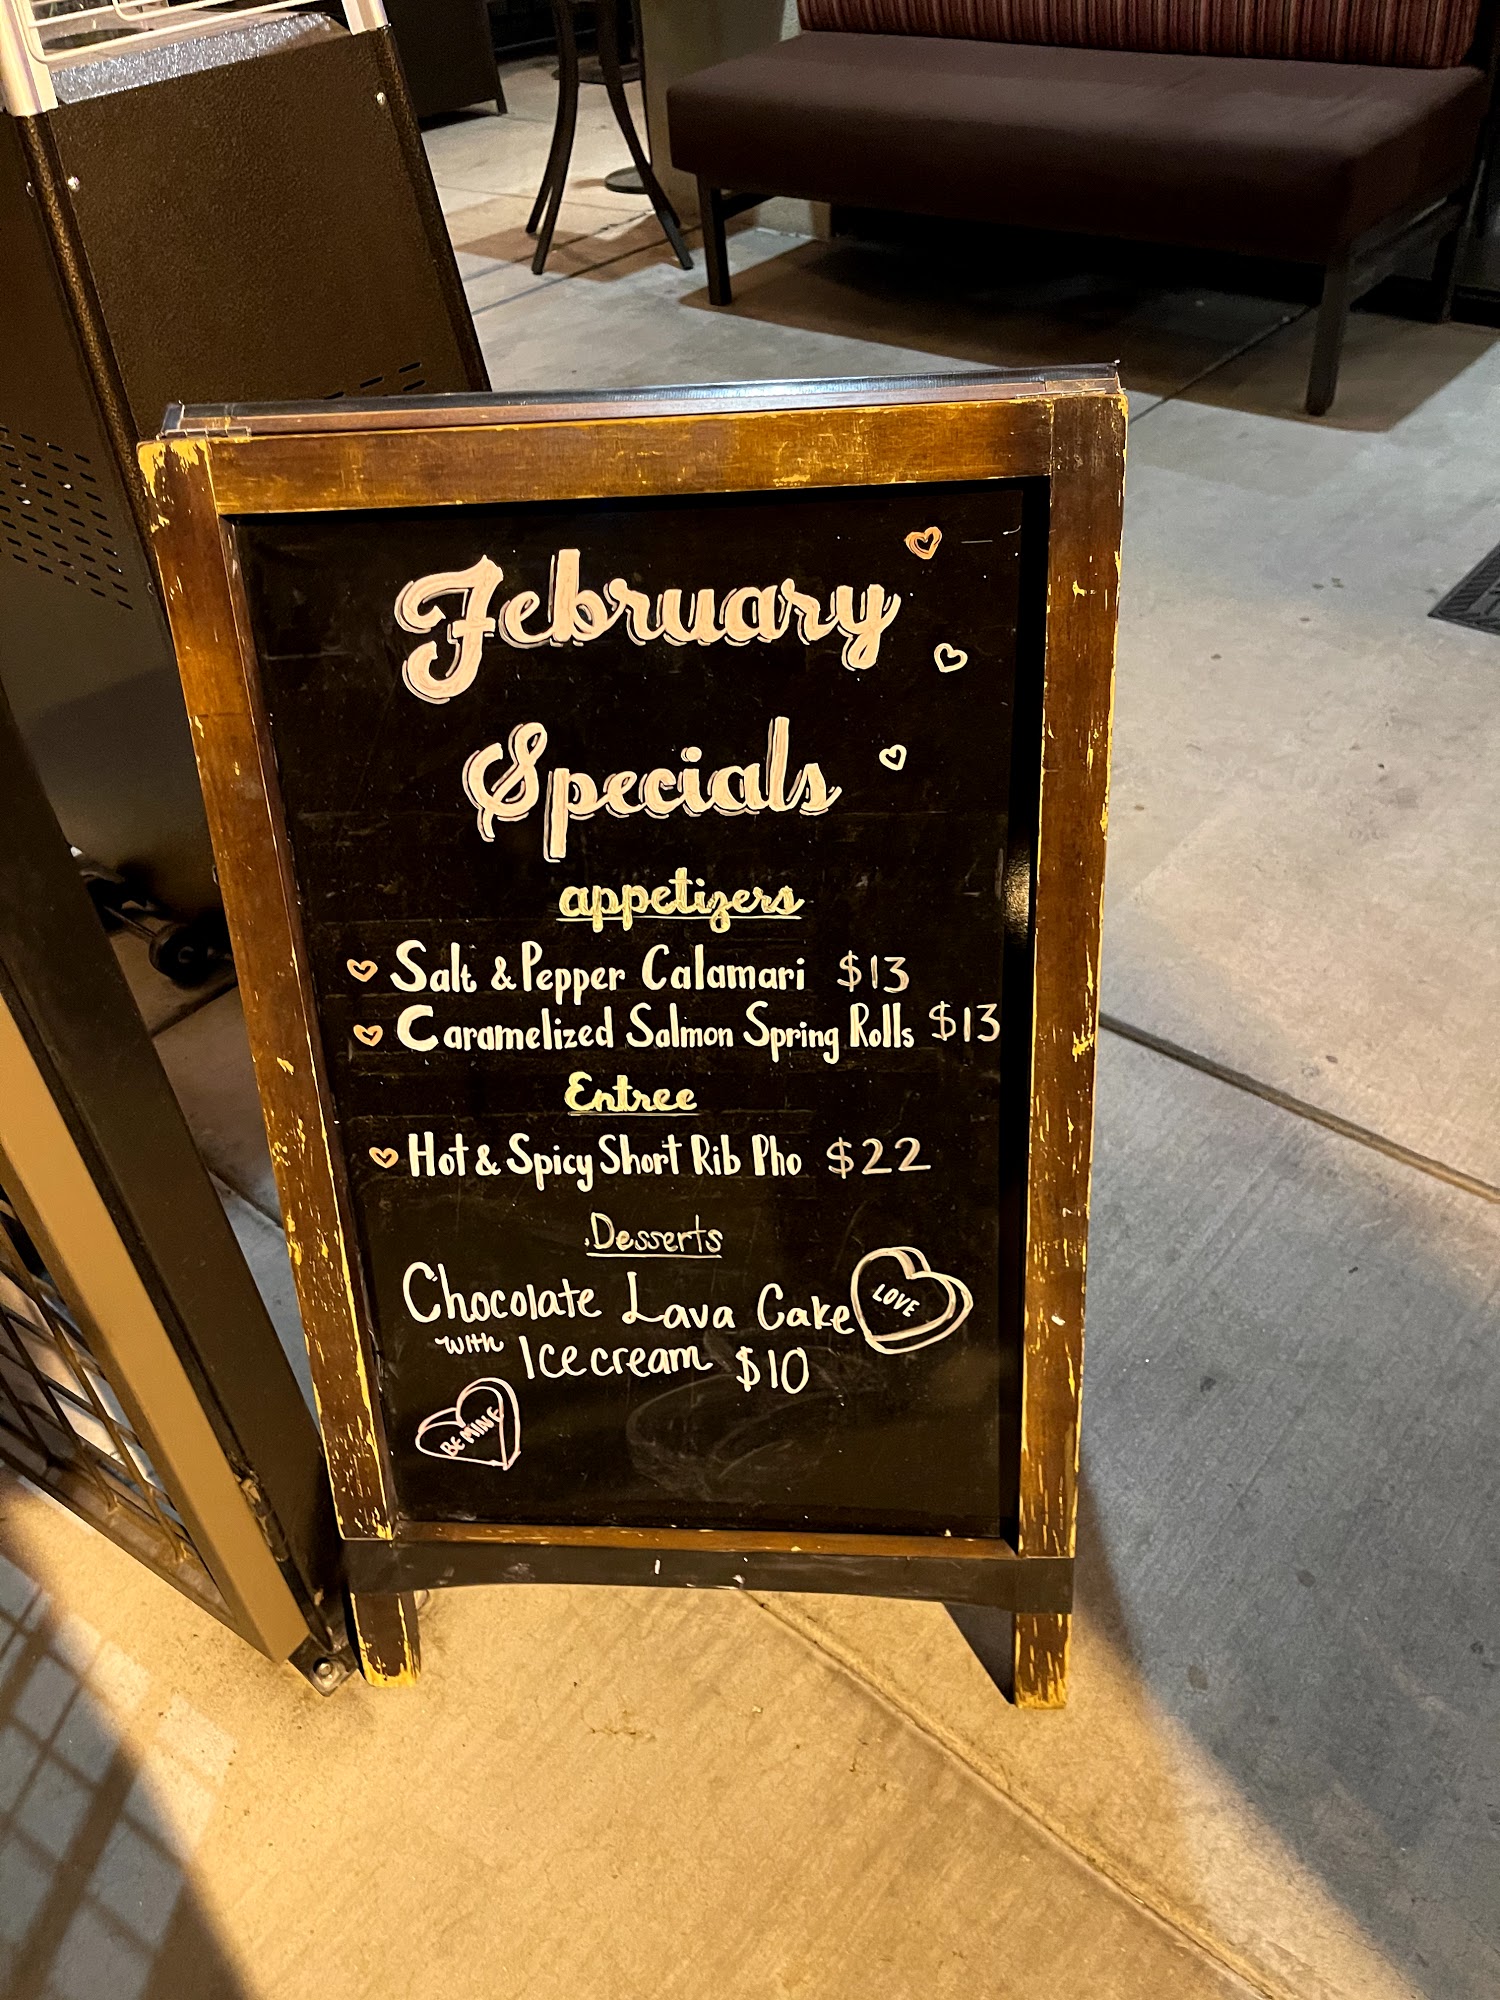 February
Specials
appetizers
Salt & Pepper Calamari $13
Caramelized Salmon Spring Rolls $13
Entree
Hot & Spicy Short Rib Pho $22
Desserts
Chocolate Lava Cake
with Ice cream $10
LOVE
BE MINE